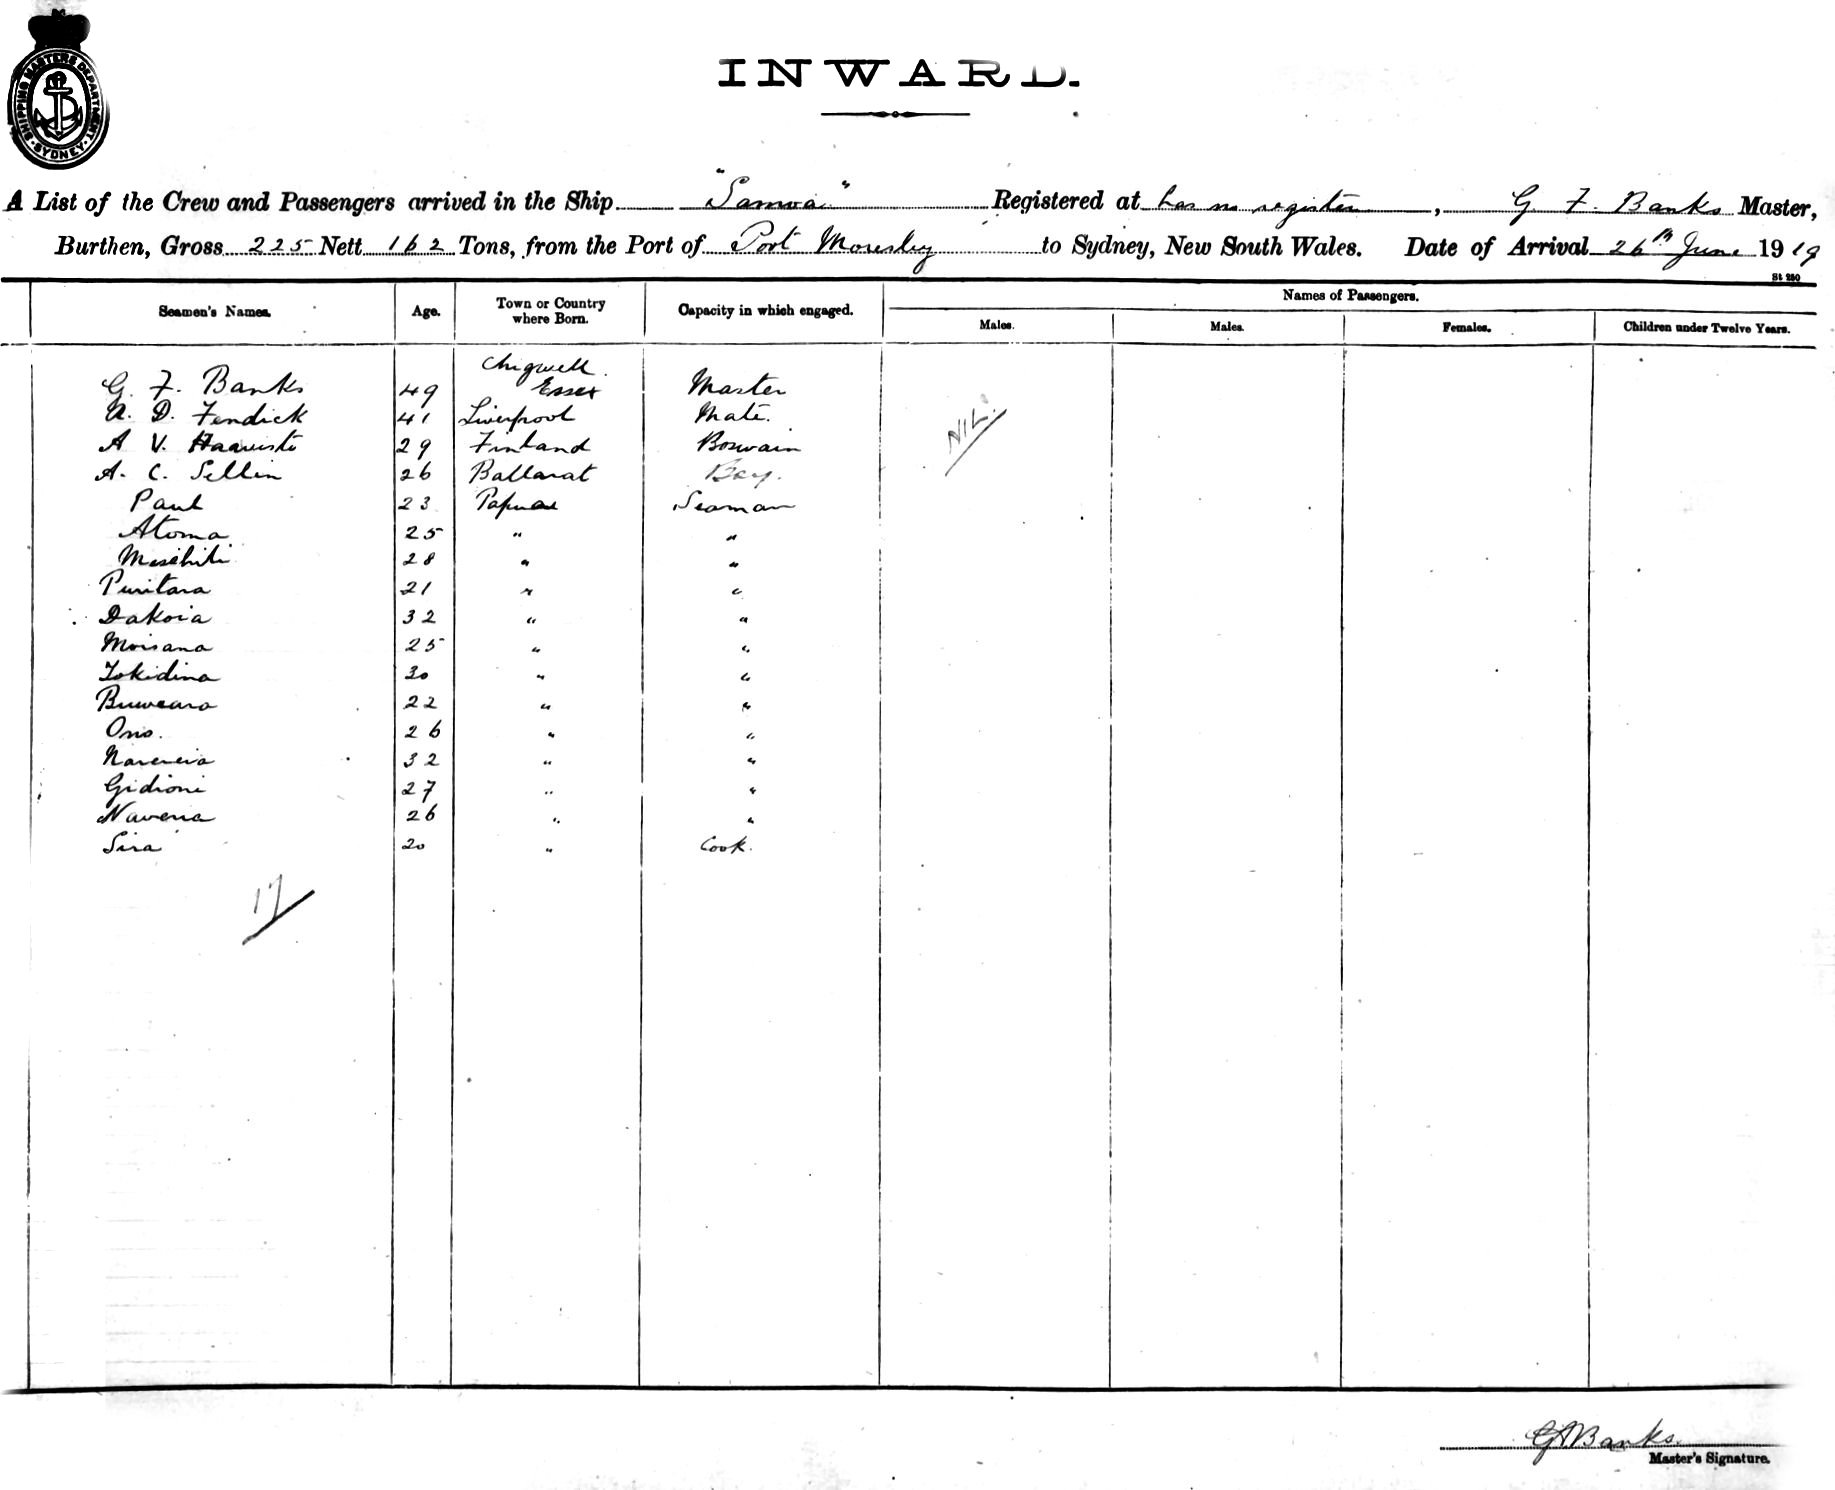 SHIPPING MASTERS DEPARTMENT
SYDNEY
INWARD.
A List of the Crew and Passengers arrived in the Ship "Samoa" Registered at has no register, G. F. Banks Master,
Burthen, Gross 225 Nett 162 Tons, from the Port of Port Moresby to Sydney, New South Wales. Date of Arrival 26th June 1919
St 250
Seamen's Names. Age. Town or Country where Born. Capacity in which engaged. Names of Passengers.
Males. Males. Females. Children under Twelve Years.
Chigwell
G. F. Banks 49 Essex Master
A. D. Fendick 41 Liverpool Mate.
A V. Haavisto 29 Finland Boswain
A. C. Sellin 26 Ballarat Boy.
NIL.
Paul 23 Papua Seaman
Atoma 25 " "
Misibili 28 " "
Puritara 21 " "
Dakoia 32 " "
Moisana 25 " "
Tokidina 30 " "
Buweara 22 " "
Ono. 26 " "
32 " "
Gidioni 27 " "
Naveria 26 " "
Sira 20 " Cook.
17
GFBanks.
Master's Signature.